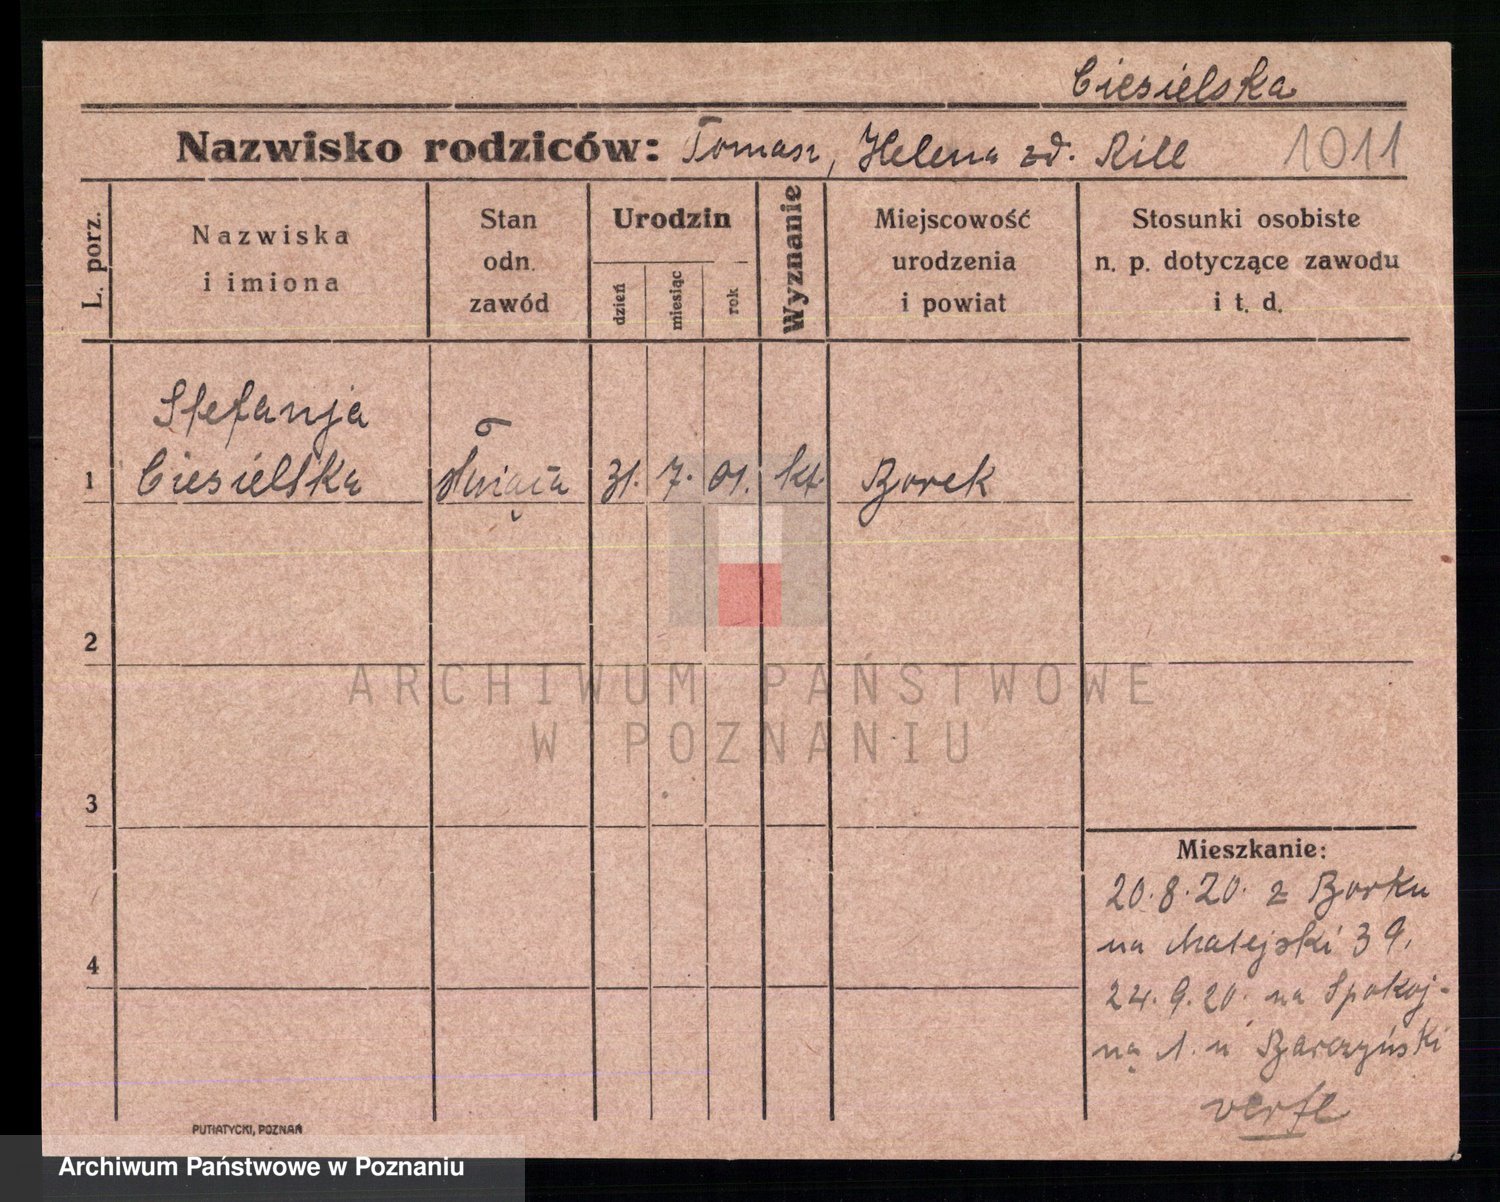 Ciesielska
Nazwisko rodziców: Tomasz, Helena zd. Rill 1011
L. porz.
Nazwiska
i imiona
Stan
odn.
zawód
Urodzin
dzień
miesiąc
rok
Wyznanie
Miejscowość
urodzenia
i powiat
Stosunki osobiste
n. p. dotyczące zawodu
i t. d.
Stefanja
1 Ciesielska służąca 31. 7. 01. kt. Borek
2
3
4
Mieszkanie:
20.8.20. z Borku
na Matejski 39.
24.9.20. na Spokoj-
ną 1. u Barczyński
PUTIATYCKI, POZNAŃ
ARCHIWUM PAŃSTWOWE
W POZNANIU
Archiwum Państwowe w Poznaniu